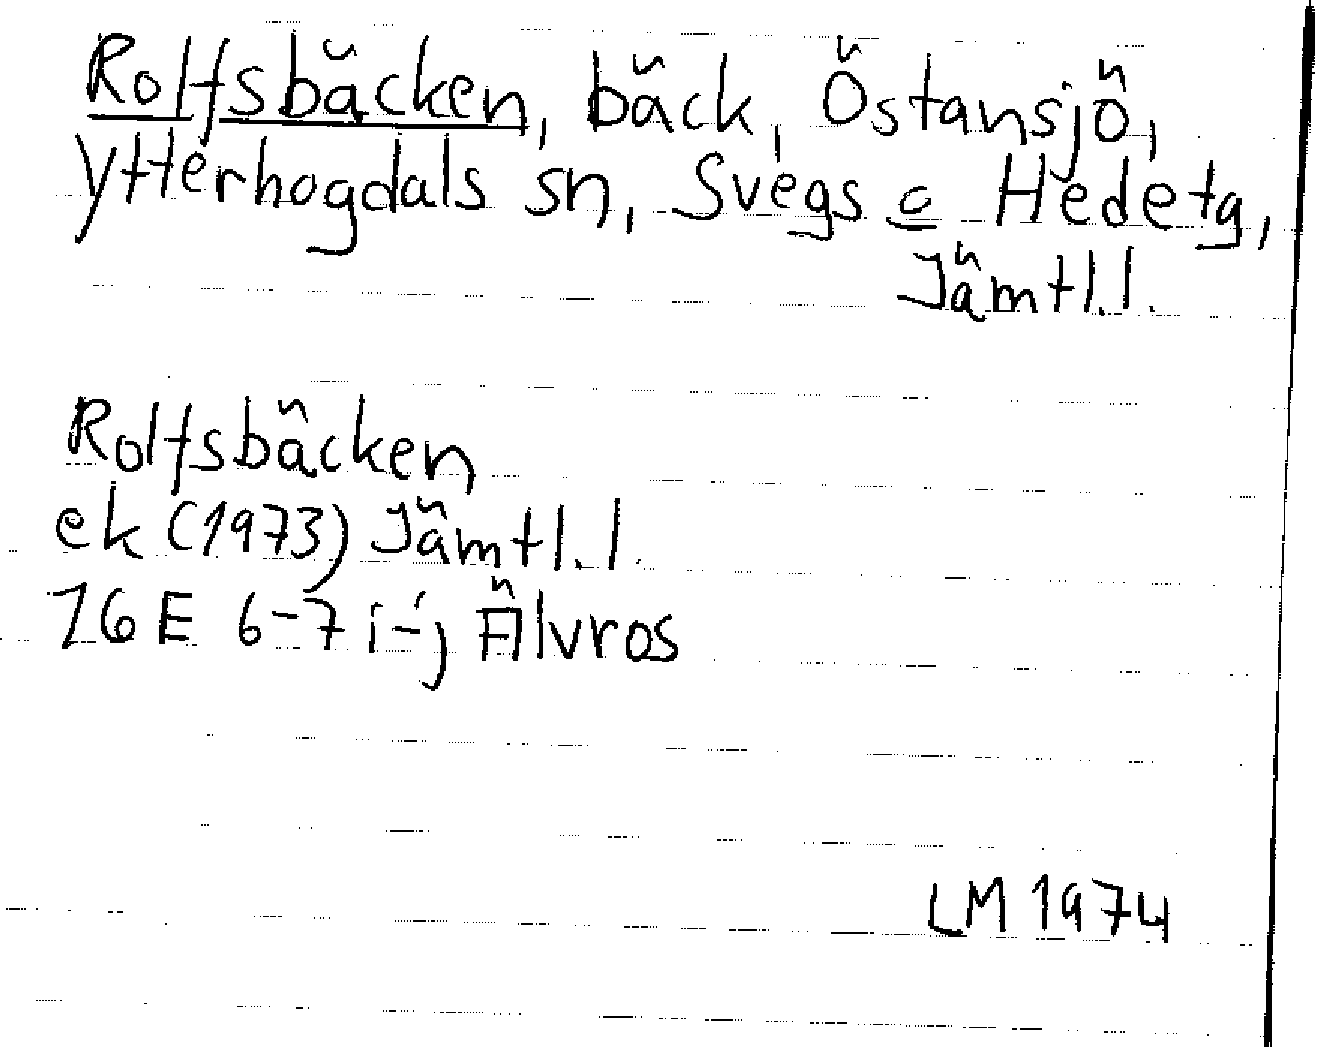 Rolfsbäcken, bäck, Östansjö,
Ytterhogdals sn, Svegs o Hede tg,
Jämtl.l.
Rolfsbäcken
ek (1973) Jämtl.l.
16E 6-7 i-j Älvros
LM 1974